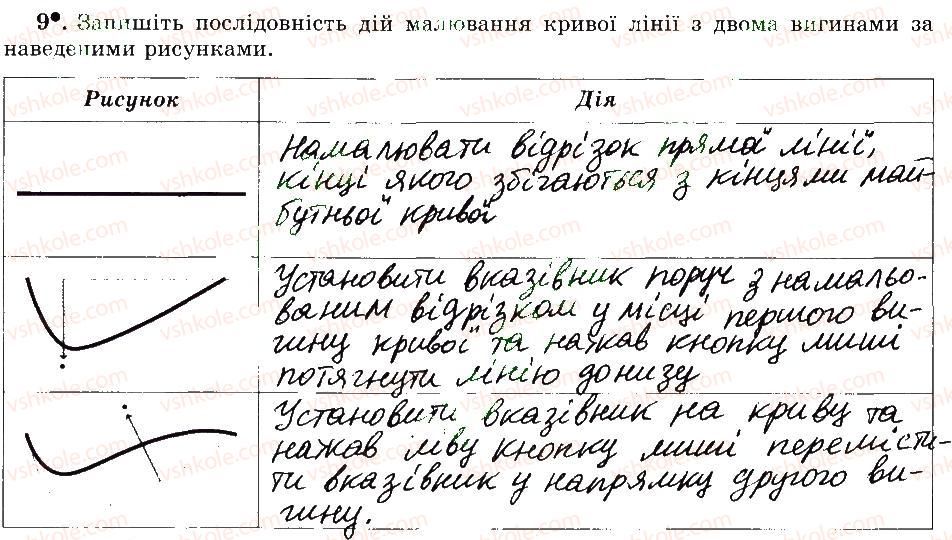 9•. Запишіть послідовність дій малювання кривої лінії з двома вигинами за
наведеними рисунками.
Рисунок
Дія
Намалювати відрізок прямої лінії,
кінці якого збігаються з кінцями май-
бутньої кривої
Установити вказівник поруч з намальо-
ваним відрізком у місці першого ви-
гину кривої та нажав кнопку миші
потягнути лінію донизу
Установити вказівник на криву та
нажав ліву кнопку миші перемісти-
ти вказівник у напрямку другого ви-
гину.